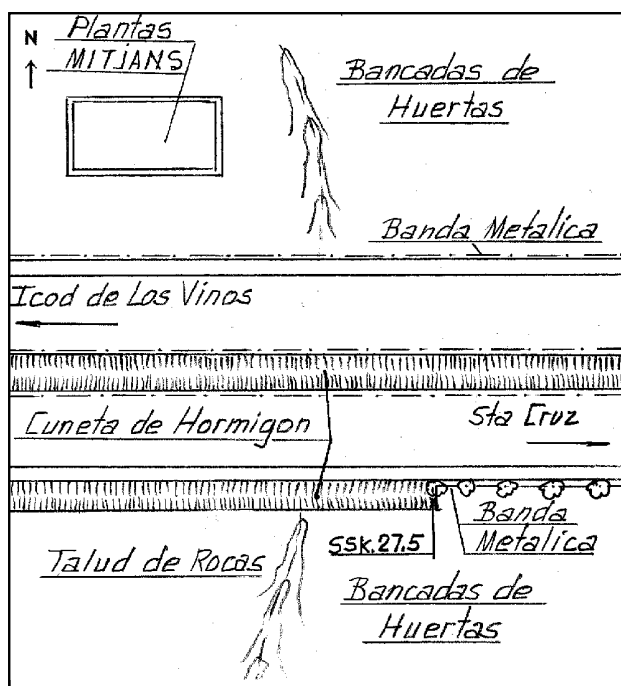 Plantas
N
MITJANS
Bancadas de
Huertas
Banda Metalica
Icod de Los Vinos
Cuneta de Hormigon
Sta Cruz
Talud de Rocas
SSK.27.5
Banda
Metalica
Bancadas de
Huertas